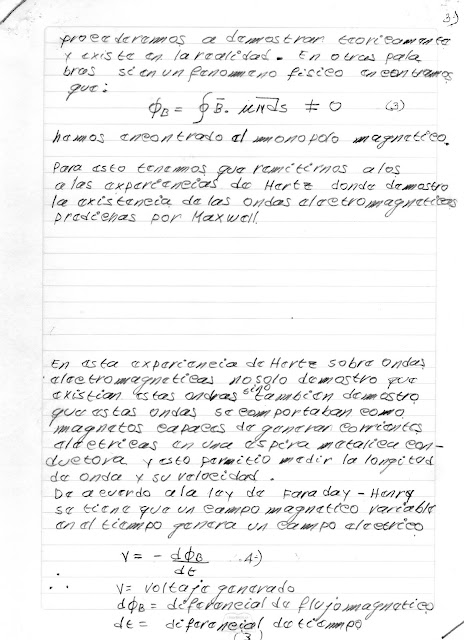 3)
procederemos a demostrar teoricamente
y existe en la realidad. En otras pala
bras si en un fenomeno fisico encontramos
que:
ϕB = ∮ B̄. ds ≠ 0 (3)
hemos encontrado el monopolo magnetico.
Para esto tenemos que remitirnos a los
a las experiencias de Hertz donde demostro
la existencia de las ondas electromagneticas
predichas por Maxwell.
En esta experiencia de Hertz sobre ondas
electromagneticas no solo demostro que
existian estas ondras sino tambien demostro
que estas ondas se comportaban como
magnetos capaces de generar corrientes
electricas en una espira metalica con-
ductora y esto permitio medir la longitud
de onda y su velocidad.
De acuerdo a la ley de Faraday - Henry
se tiene que un campo magnetico variable
en el tiempo genera un campo electrico
V = - dϕB/dt 4)
V = voltaje generado
dϕB = diferencial de flujo magnetico
dt = diferencial de tiempo
(3)